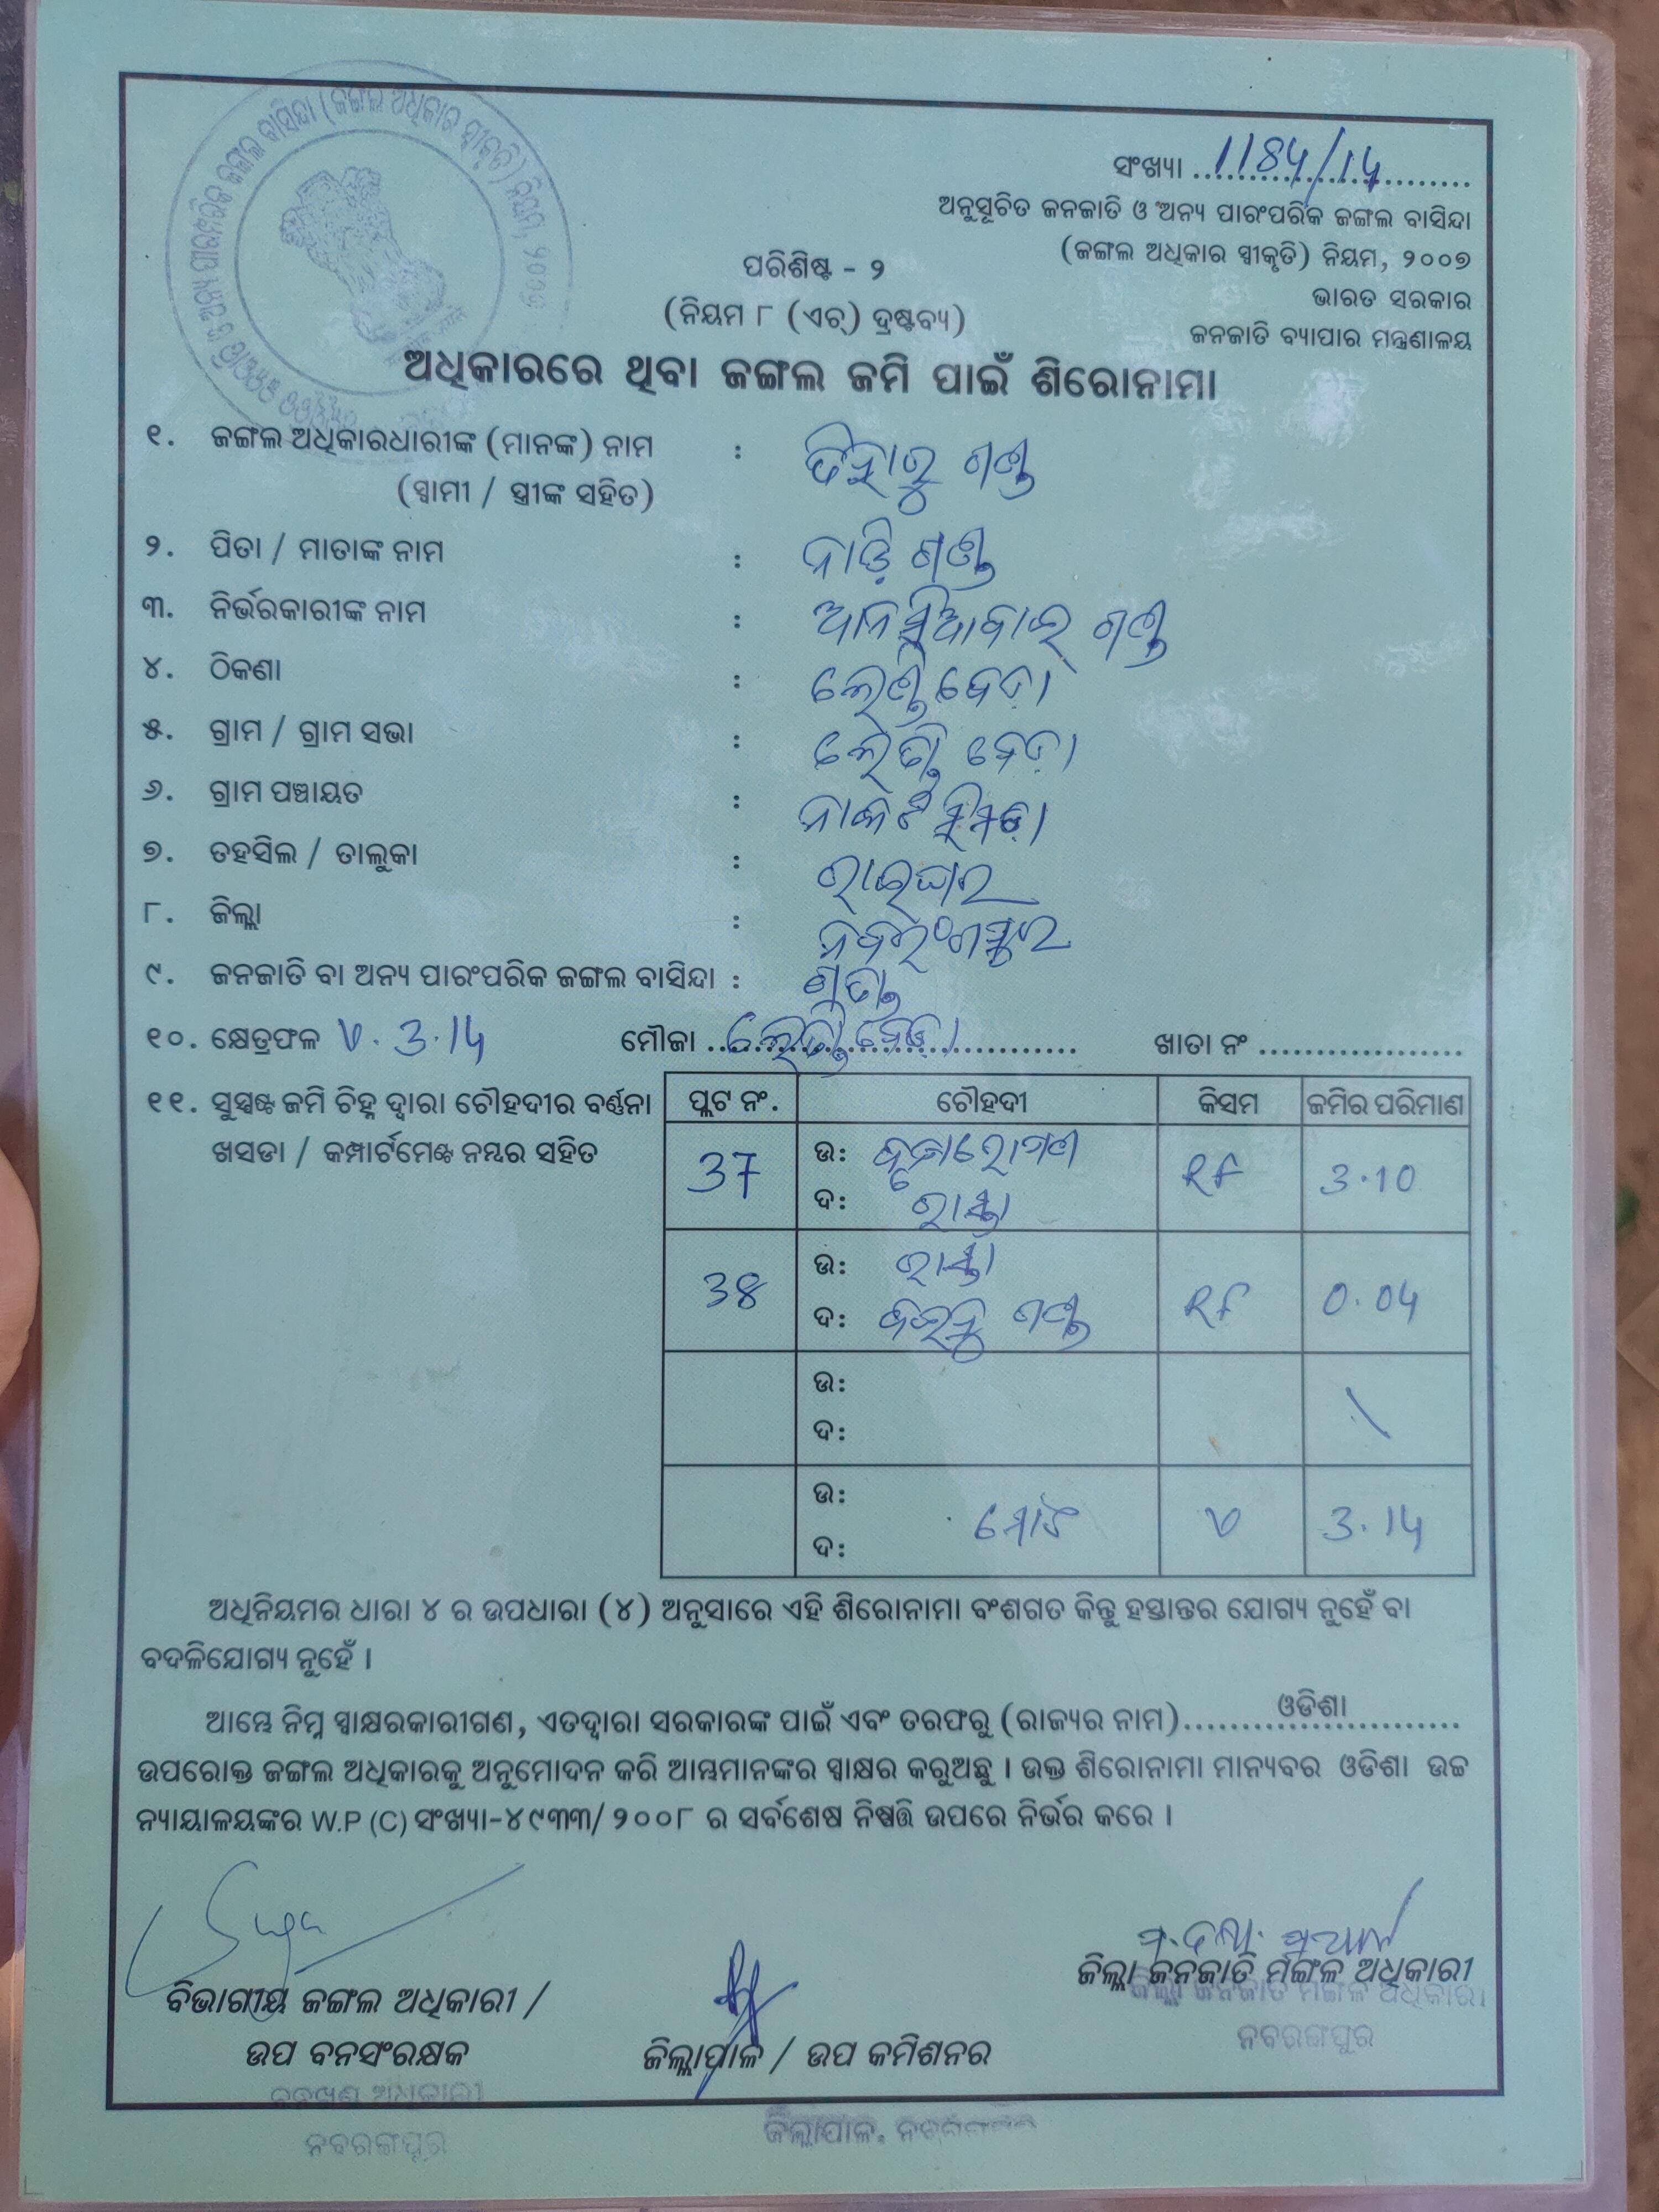 ଅନ୍ୟ ପାରମ୍ପରିକ ଜଙ୍ଗଲ ବାସିନ୍ଦା (ଜଙ୍ଗଲ ଅଧିକାର ସ୍ୱୀକୃତି) ନିୟମ, ୨୦୦୭
ସଂଖ୍ୟା 1184/14
ଅନୁସୂଚିତ ଜନଜାତି ଓ ଅନ୍ୟ ପାରଂପରିକ ଜଙ୍ଗଲ ବାସିନ୍ଦା
(ଜଙ୍ଗଲ ଅଧିକାର ସ୍ୱୀକୃତି) ନିୟମ, ୨୦୦୭
ଭାରତ ସରକାର
ଜନଜାତି ବ୍ୟାପାର ମନ୍ତ୍ରଣାଳୟ
ପରିଶିଷ୍ଟ - ୨
(ନିୟମ ୮ (ଏଚ୍) ଦ୍ରଷ୍ଟବ୍ୟ)
ଅଧିକାରରେ ଥିବା ଜଙ୍ଗଲ ଜମି ପାଇଁ ଶିରୋନାମା
୧. ଜଙ୍ଗଲ ଅଧିକାରଧାରୀଙ୍କ (ମାନଙ୍କ) ନାମ : ଗଣ୍ଡ
(ସ୍ୱାମୀ / ସ୍ତ୍ରୀଙ୍କ ସହିତ)
୨. ପିତା / ମାତାଙ୍କ ନାମ : ଗଣ୍ଡ
୩. ନିର୍ଭରକାରୀଙ୍କ ନାମ : ଗଣ୍ଡ
୪. ଠିକଣା :
୫. ଗ୍ରାମ / ଗ୍ରାମ ସଭା :
୬. ଗ୍ରାମ ପଞ୍ଚାୟତ :
୭. ତହସିଲ / ତାଲୁକା : ରାଇଘର
୮. ଜିଲ୍ଲା : ନବରଂଗପୁର
୯. ଜନଜାତି ବା ଅନ୍ୟ ପାରଂପରିକ ଜଙ୍ଗଲ ବାସିନ୍ଦା : ଗଣ୍ଡ
୧୦. କ୍ଷେତ୍ରଫଳ 3.14 ମୌଜା ଖାତା ନଂ
୧୧. ସୁସ୍ପଷ୍ଟ ଜମି ଚିହ୍ନ ଦ୍ୱାରା ଚୌହଦୀର ବର୍ଣ୍ଣନା
ଖସଡା / କମ୍ପାର୍ଟମେଣ୍ଟ ନମ୍ବର ସହିତ
ପ୍ଲଟ ନଂ. ଚୌହଦୀ କିସମ ଜମିର ପରିମାଣ
37 ଉ: ବୃକ୍ଷରୋପଣ RF 3.10
ଦ: ରାସ୍ତା
38 ଉ: ରାସ୍ତା RF 0.04
ଦ: ଗଣ୍ଡ
ଉ:
ଦ:
ଉ: ମୋଟ 3.14
ଦ:
ଅଧିନିୟମର ଧାରା ୪ ର ଉପଧାରା (୪) ଅନୁସାରେ ଏହି ଶିରୋନାମା ବଂଶଗତ କିନ୍ତୁ ହସ୍ତାନ୍ତର ଯୋଗ୍ୟ ନୁହେଁ ବା
ବଦଳିଯୋଗ୍ୟ ନୁହେଁ ।
ଆମ୍ଭେ ନିମ୍ନ ସ୍ୱାକ୍ଷରକାରୀଗଣ, ଏତଦ୍ୱାରା ସରକାରଙ୍କ ପାଇଁ ଏବଂ ତରଫରୁ (ରାଜ୍ୟର ନାମ) ଓଡିଶା
ଉପରୋକ୍ତ ଜଙ୍ଗଲ ଅଧିକାରକୁ ଅନୁମୋଦନ କରି ଆମ୍ଭମାନଙ୍କର ସ୍ୱାକ୍ଷର କରୁଅଛୁ । ଉକ୍ତ ଶିରୋନାମା ମାନ୍ୟବର ଓଡିଶା ଉଚ୍ଚ
ନ୍ୟାୟାଳୟଙ୍କର W.P (C) ସଂଖ୍ୟା-୪୯୩୩/ ୨୦୦୮ ର ସର୍ବଶେଷ ନିଷ୍ପତ୍ତି ଉପରେ ନିର୍ଭର କରେ ।
ବିଭାଗୀୟ ଜଙ୍ଗଲ ଅଧିକାରୀ /
ଉପ ବନସଂରକ୍ଷକ
ବନଖଣ୍ଡ ଅଧିକାରୀ
ନବରଙ୍ଗପୁର
ଜିଲ୍ଲାପାଳ / ଉପ କମିଶନର
ଜିଲ୍ଲାପାଳ, ନବରଙ୍ଗପୁର
ଜିଲ୍ଲା ଜନଜାତି ମଙ୍ଗଳ ଅଧିକାରୀ
ଜିଲ୍ଲା ଜନଜାତି ମଙ୍ଗଳ ଅଧିକାରୀ
ନବରଙ୍ଗପୁର